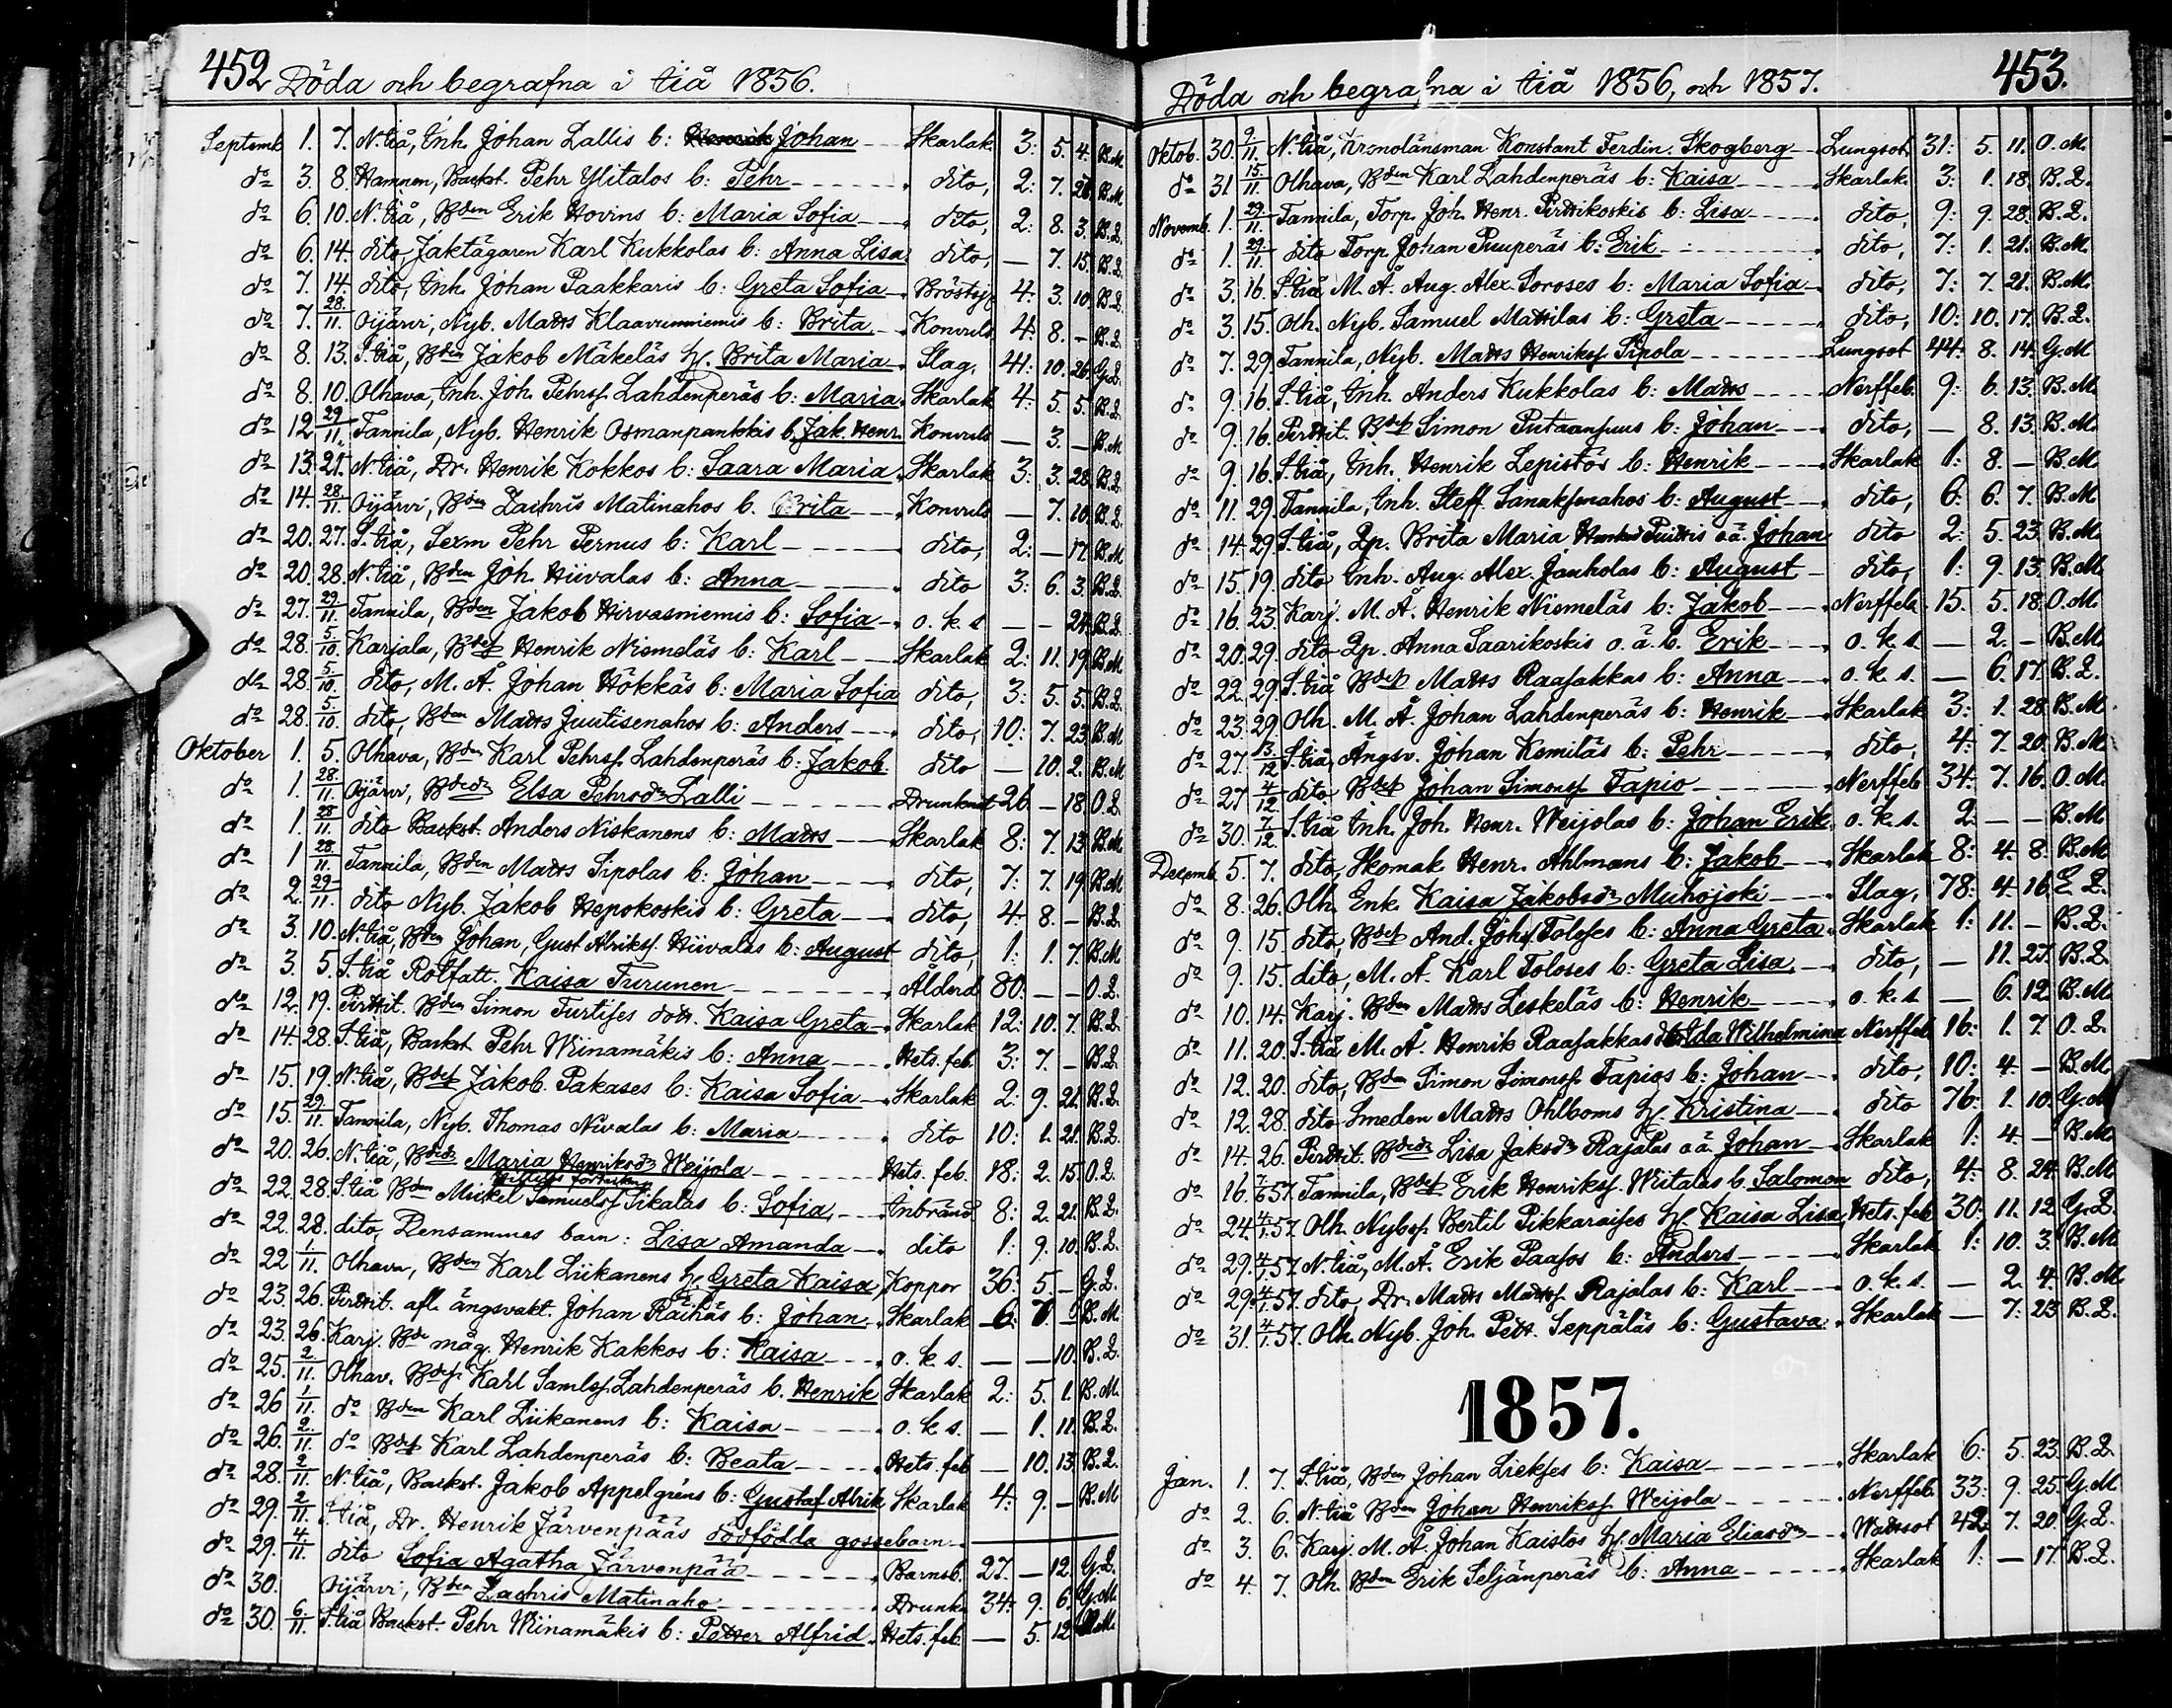 452 Döda och begrafna i Iiå 1856.
Septemb. 1. 7. N. Iiå, Inh. Johan Lallis b: Johan Skarlak. 3: 5. 4. B.M
do 3. 8. Hamnen, Backst. Pehr Ylitalos b: Pehr dito, 2: 7. 28. B.M
do 6. 10. N. Iiå, Bden Erik Hovins b: Maria Sofia dito, 2: 8. 3. B.Q.
do 6. 14. dito, Jaktägaren Karl Kukkolas b: Anna Lisa dito, — 7. 15. B.Q.
do 7. 14. dito, Inh. Johan Paakkaris b: Greta Sofia Bröstsj. 4: 3. 10. B.Q.
do 7. 28/11. Oijärvi, Nyb. Matts Klaavunniemis b: Brita Konvuls 4: 8. – B.Q.
do 8. 13. S. Iiå, Bden Jakob Mäkeläs h. Brita Maria Slag, 41: 10. 26. G.Q.
do 8. 10. Olhava, Inh. Joh. Pehrsf. Lahdenperäs b: Maria Skarlak 4: 5. 5. B.Q.
do 12 29/11. Tannila, Nyb. Henrik Osmanpankkis b. Jak. Henr. Konvuls — 3. – B.M
do 13. 21. N. Iiå, Dr. Henrik Kokkos b: Saara Maria Skarlak 3: 3. 28. B.Q.
do 14. 28/11. Oijärvi, Bden Zachris Matinahos b. Brita Konvuls — 7. 10. B.Q.
do 20. 27. S. Iiå, Sexm Pehr Pernus b: Karl dito, 2: – 17. B.M
do 20. 28. N. Iiå, Bden Joh. Hiivalas b: Anna dito 3: 6. 3. B.Q.
do 27. 29/11. Tannila, Bden Jakob Hirvasniemis b: Sofia o. k. s — – 24. B.Q.
do 28. 5/10. Karjala, Bdesf Henrik Niemeläs b: Karl Skarlak 2: 11. 19. B.M
do 28. 5/10. dito, M. Å. Johan Hökkäs b: Maria Sofia dito, 3: 5. 5. B.Q.
do 28. 5/10. dito, Bden Matts Juutisenahos b: Anders dito, 10: 7. 23. B.M
Oktober 1. 5. Olhava, Bden Karl Pehrsf. Lahdenperäs b: Jakob dito — 10. 2. B.M
do 1. 28/11. Oijärvi, Bdedr Elsa Pehrsdr Lalli Drunknat 26. – 18. O.Q.
do 1. 28/11. dito Backst. Anders Niskanens b: Matts Skarlak 8: 7. 13. B.M
do 1 28/11. Tannila, Bden Matts Sipolas b: Johan dito, 7: 7. 19. B.M
do 2. 29/11. dito Nyb. Jakob Hepokoskis b: Greta dito, 4: 8. – B.Q.
do 3. 10. N. Iiå, Bden Johan, Gust Alriksf. Hiivalas b: August dito, 1: 1. 7. B.M
do 3. 5. S. Iiå Rotfatt. Kaisa Turunen Ålderd 80: – – O.Q.
do 12. 19. Pirttit. Bden Simon Turtifes dott. Kaisa Greta Skarlak 12: 10. 7. B.Q.
do 14. 28. S. Iiå, Backst Pehr Wiinamäkis b: Anna Hets. feb. 3: 7. – B.Q.
do 15. 19. N. Iiå, Bdesf Jakob Pakases b: Kaisa Sofia Skarlak 2: 9. 21. B.Q.
do 15. 29/11. Tannila, Nyb. Thomas Nivalas b: Maria dito 10: 1. 21. B.Q.
do 20. 26. N. Iiå, Bdedr Maria Henriksdr Weijola Hets. feb. 18: 2. 15. O.Q.
do 22. 28. S. Iiå Bden Mickel Samuelsf Sikalas b: Sofia Inbränd 8: 2. 21. B.Q.
do 22. 28. dito, Densammes barn: Lisa Amanda dito 1: 9. 10. B.Q.
do 22 1/11. Olhava, Bden Karl Liikanens h. Greta Kaisa Koppor 36: 5. – G.Q.
do 23. 26. Pirttit. afl. ängsvakt. Johan Räihäs b: Johan Skarlak 6: B.M.
do 23. 26. Karj. Bde måg. Henrik Kakkos b: Kaisa o. k. s. — – 10. B.Q.
do 25. 2/11. Olhav. Bdesf. Karl Samlsf. Lahdenperäs b. Henrik Skarlak 2: 5. 1. B.M.
do 26 1/11. do Bden Karl Liikanens b: Kaisa o. k s. — 1. 11. B.Q.
do 26. 2/11. do Bdesf Karl Lahdenperäs b: Beata Hets. feb — 10. 13. B.Q.
do 28. 2/11. N. Iiå, Backst. Jakob Appelgréns b: Gustaf Alrik Skarlak 4: 9. – B.M
do 29. 2/11. S. Iiå, Dr. Henrik Järvenpääs dödfödda gossebarn
do 29. 4/11. dito Sofia Agatha Järvenpää Barnsb. 27. – 12. G.Q.
do 30. Oijärvi, Bden Zachris Matinaho Drunk. 34: 9. 6. G.M.
do 30. 6/11. S. Iiå Backst. Pehr Wiinamäkis b: Petter Alfrid Hets. feb — 5. 12 B.M.
Döda och begrafna i Iiå 1856, och 1857. 453.
Oktob. 30. 9/11. N. Iiå, Kronolänsman Konstant Ferdin. Skogberg Lungsot 31: 5. 11. O.M.
do 31 15/11. Olhava, Bden Karl Lahdenperäs b: Kaisa Skarlak. 3: 1. 18. B.Q.
Novemb. 1. 29/11. Tannila, Torp. Joh. Henr. Pirttikoskis b: Lisa dito, 9: 9. 28. B.Q.
do 1. 29/11. dito Torp. Johan Puuperäs b: Erik dito, 7: 1. 21. B.M.
do 3. 16. S. Iiå M. Å. Aug. Alex. Soroses b: Maria Sofia dito, 7: 7. 21. B.M.
do 3. 15. Olh. Nyb. Samuel Mattilas b: Greta dito, 10: 10. 17. B.Q.
do 7. 29. Tannila, Nyb. Matts Henriksf Sipola Lungsot 44: 8. 14. G.M
do 9. 16. S. Iiå, Inh. Anders Kukkolas b: Matts Nerffeb. 9: 6. 13. B.M.
do 9. 16. Pirttit. Bdesf Simon Putaansuus b: Johan dito, — 8. 13. B.M.
do 9. 16. S. Iiå, Inh. Henrik Lepistös b: Henrik Skarlak 1: 8. – B.M.
do 11. 29. Tannila, Inh. Steff. Sanaksenahos b: August dito, 6: 6. 7. B.M
do 14. 29. S. Iiå, Qp. Brita Maria oä. Johan dito 2: 5. 23. B.M.
do 15. 19. dito Inh. Aug. Alex. Janholas b: August dito, 1: 9. 13. B.M.
do 16. 23. Karj. M. Å. Henrik Niemeläs b: Jakob Nerffeb. 15. 5. 18. O.M.
do 20. 29. dito Qp. Anna Saarikoskis o. ä. b. Erik o. k. s. — 2. – B.M.
do 22. 29. S. Iiå Bdesf Matts Raasakkas b: Anna o. k. s. — 6. 17. B.Q.
do 23. 29. Olh. M. Å. Johan Lahdenperäs b: Henrik Skarlak 3: 1. 28. B.M.
do 27. 13/12 S. Iiå Ängsv. Johan Komiläs b: Pehr dito, 4: 7. 20. B.M.
do 27 4/12. dito Bdesf Johan Simonsf Tapio Nerffeb 34: 7. 16. O.M.
do 30. 7/12. S. Iiå Inh. Joh. Henr. Weijolas b: Johan Erik o. k. s. 2: — – B.M.
Decemb. 5. 7. dito, Skomak Henr. Ahlmans b: Jakob Skarlak 8: 4. 8. B.M
do 8. 26. Olh. Enk. Kaisa Jakobsdr Muhojoki Slag, 78: 4. 16. E.Q.
do 9. 15. dito, Bdesf And. Johsf. Tolofes b: Anna Greta Skarlak 1: 11. – B.Q.
do 9. 15. dito, M. Å. Karl Toloses b: Greta Lisa dito, — 11. 27. B.Q.
do 10. 14. Karj. Bden Matts Leskeläs b: Henrik o. k. s — 6. 12. B.M.
do 11. 20. S. Iiå M. Å. Henrik Raasakkas dott Ida Wilhelmina Nerffeb 16: 1. 7. O.Q.
do 12. 20. dito, Bden Simon Simonsf. Tapios b: Johan dito, 10: 4. – B.M
do 12. 28. dito Smeden Matts Ohlboms h. Kristina dito 76: 1. 10. G.M
do 14. 26. Pirttit. Bdedr Lisa Jaksdr Rajalas oä. Johan Skarlak 1: 4. – B.M.
do 16. 57. Tannila, Bdesf Erik Henriksf. Wiitalas b. Salomon dito, 4: 8. 24. B.M.
do 24. 4/1.57. Olh. Nybsf. Bertil Pikkaraifes h. Kaisa Lisa Hets. feb 30: 11. 12. G.Q.
do 29. 4/1.57. N. Iiå, M. Å. Erik Paasos b: Anders Skarlak 1: 10. 3. B.M.
do 29. 4/1.57. dito, Dr. Matts Mattsf. Rajalas b: Karl o. k. s. — 2. 4. B.M.
do 31. 4/1.57. Olh. Nyb. Joh. Pett. Seppäläs b: Gustava Skarlak — 7: 23. B.Q.
1857.
Jan. 1. 7. S. Iiå, Bden Johan Liekses b: Kaisa Skarlak 6: 5. 23. B.Q.
do 2. 6. N. Iiå Bden Johan Henriksf. Weijola Nerffeb. 33: 9. 25. G.M
do 3. 6. Karj. M. Å. Johan Kaistos h. Maria Eliasdr Wattsot 42: 7. 20. G.Q.
do 4. 7. Olh. Bden Erik Seljänperäs b: Anna Skarlak 1: — 17. B.Q.